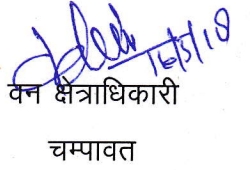 16/5/18
वन क्षेत्राधिकारी
चम्पावत